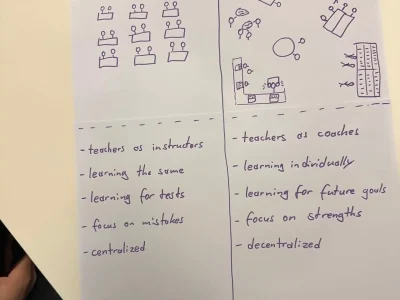 - teachers as instructors
- learning the same
- learning for tests
- focus on mistakes
- centralized
- teachers as coaches
- learning individually
- learning for future goals
- focus on strengths
- decentralized